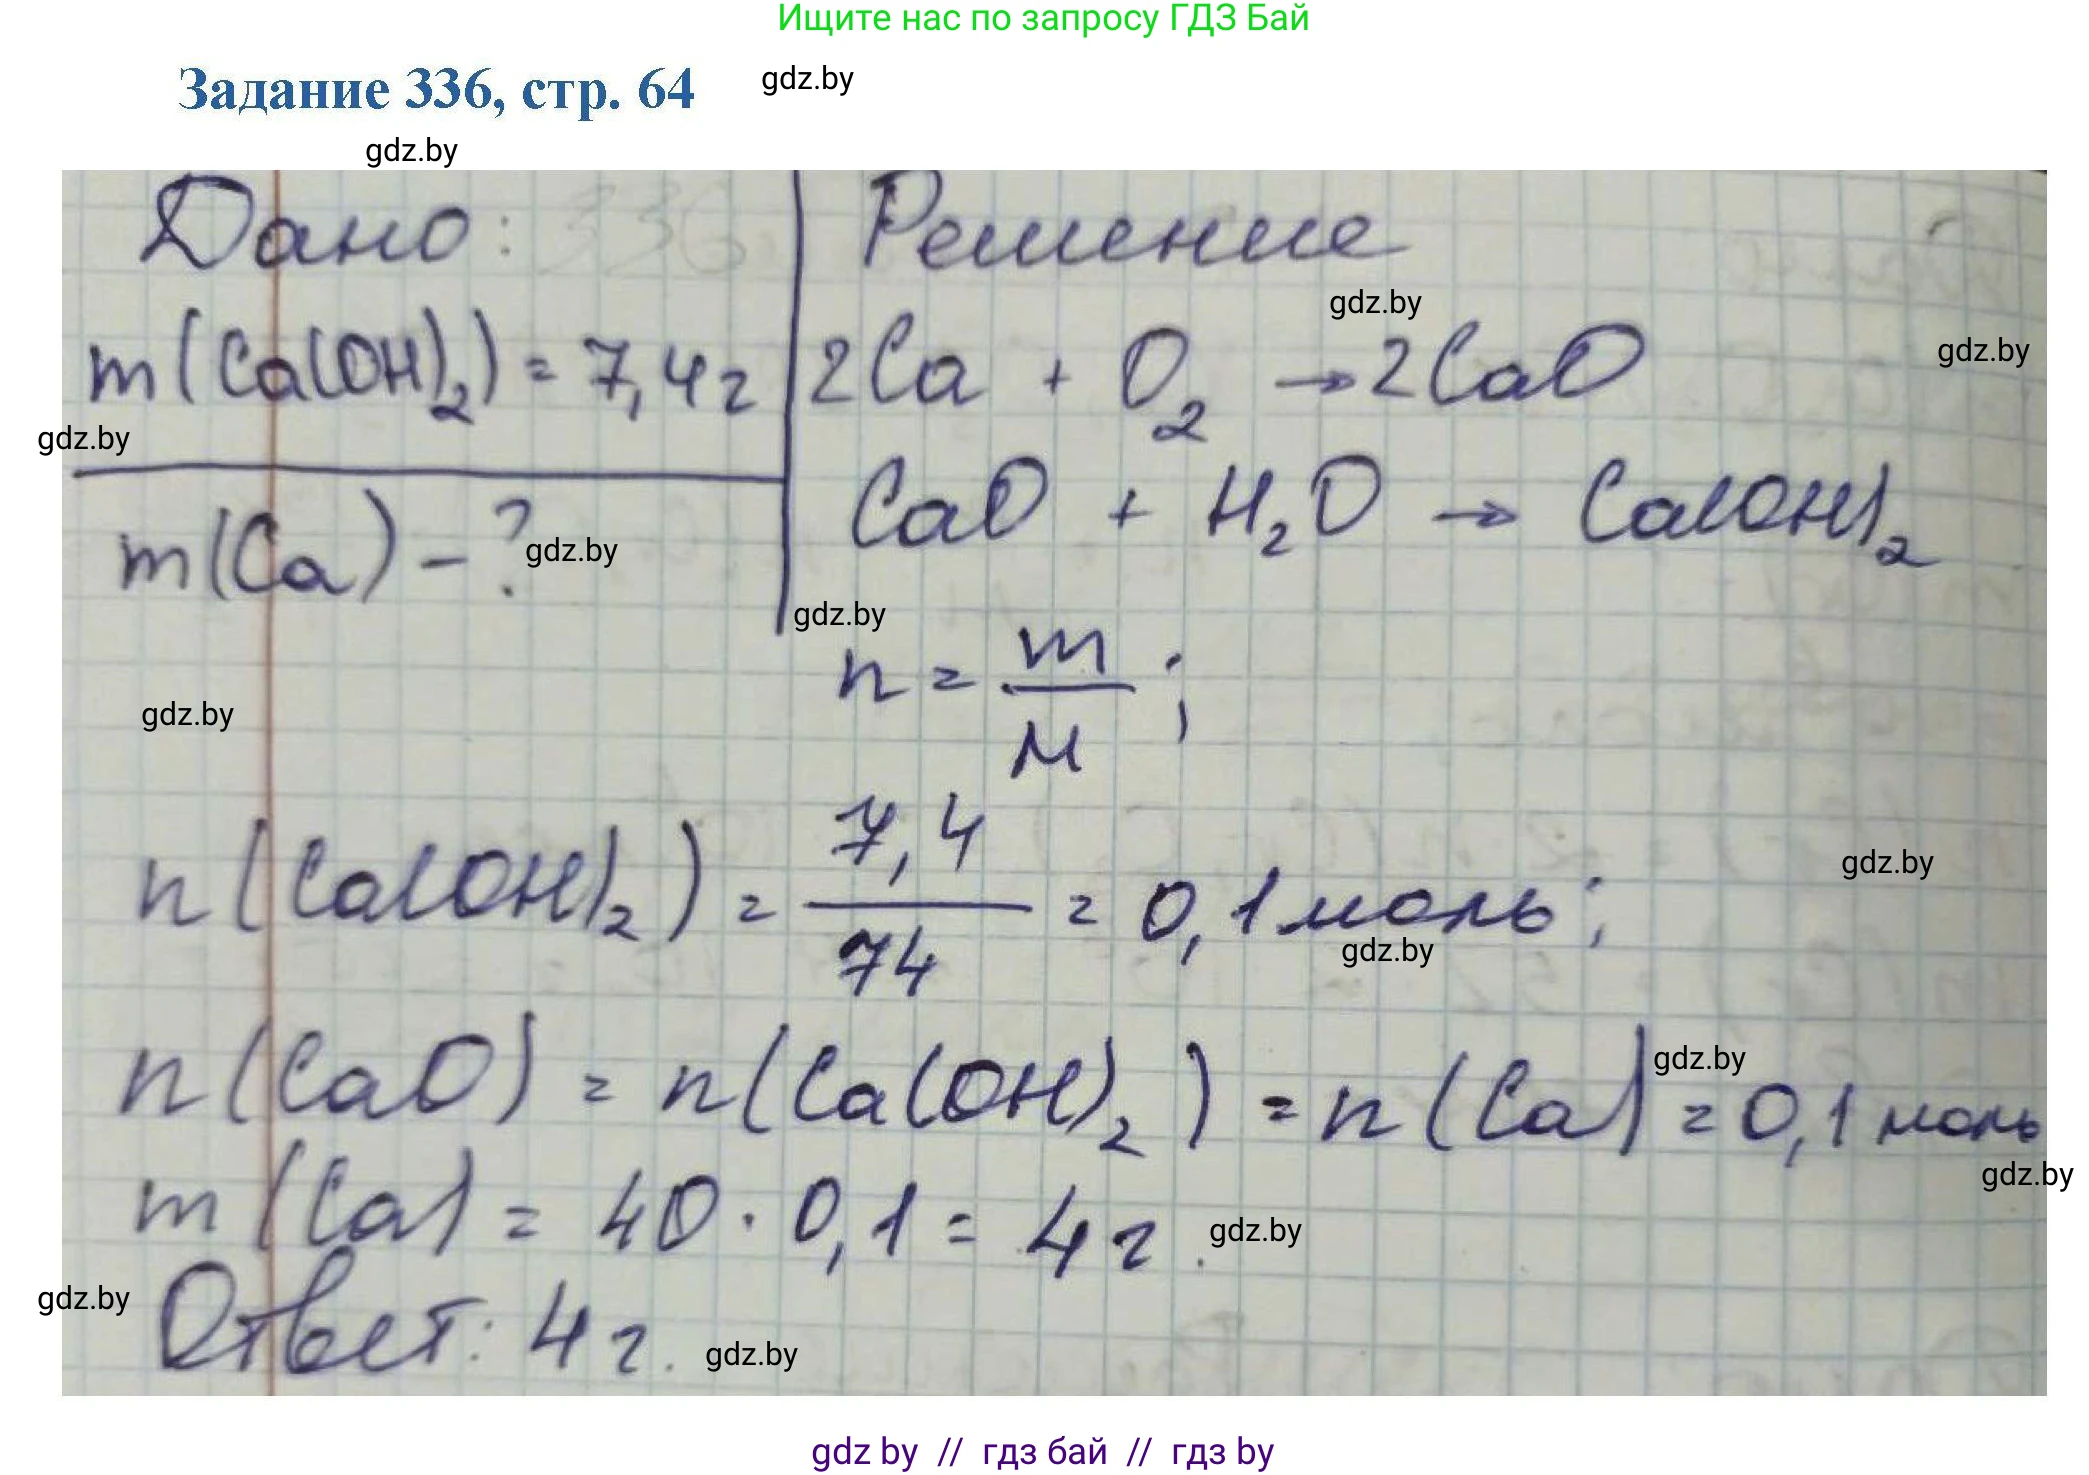 Ищите нас по запросу ГДЗ Бай
Задание 336, стр. 64
gdz.by
gdz.by
Дано: 336
Решение
gdz.by
m(Ca(OH)₂) = 7,4г
2Ca + O₂ → 2CaO
gdz.by
gdz.by
CaO + H₂O → Ca(OH)₂
m(Ca) - ?
gdz.by
gdz.by
n = m/M ;
gdz.by
n(Ca(OH)₂) = 7,4/74 = 0,1 моль;
gdz.by
gdz.by
n(CaO) = n(Ca(OH)₂) = n(Ca) = 0,1 моль
gdz.by
gdz.by
m(Ca) = 40 · 0,1 = 4г.
gdz.by
gdz.by
Ответ: 4г.
gdz.by
gdz by // гдз бай // гдз by